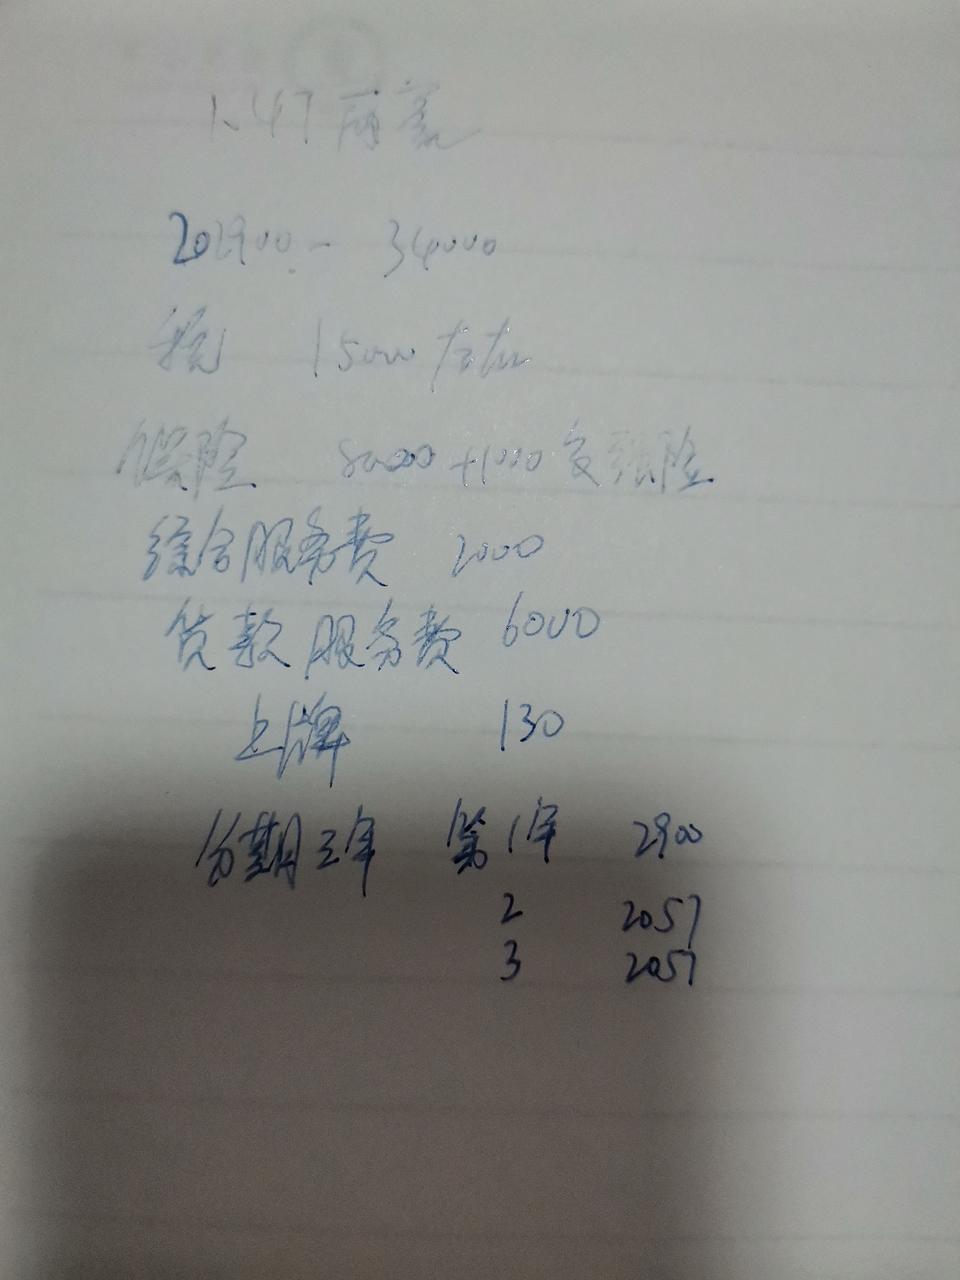 1.4T 两豪
202900 - 34000
税 15000左右
保险 8000+1000交强险
综合服务费 2000
贷款服务费 6000
上牌 130
分期三年 第1年 2900
2 2057
3 2057